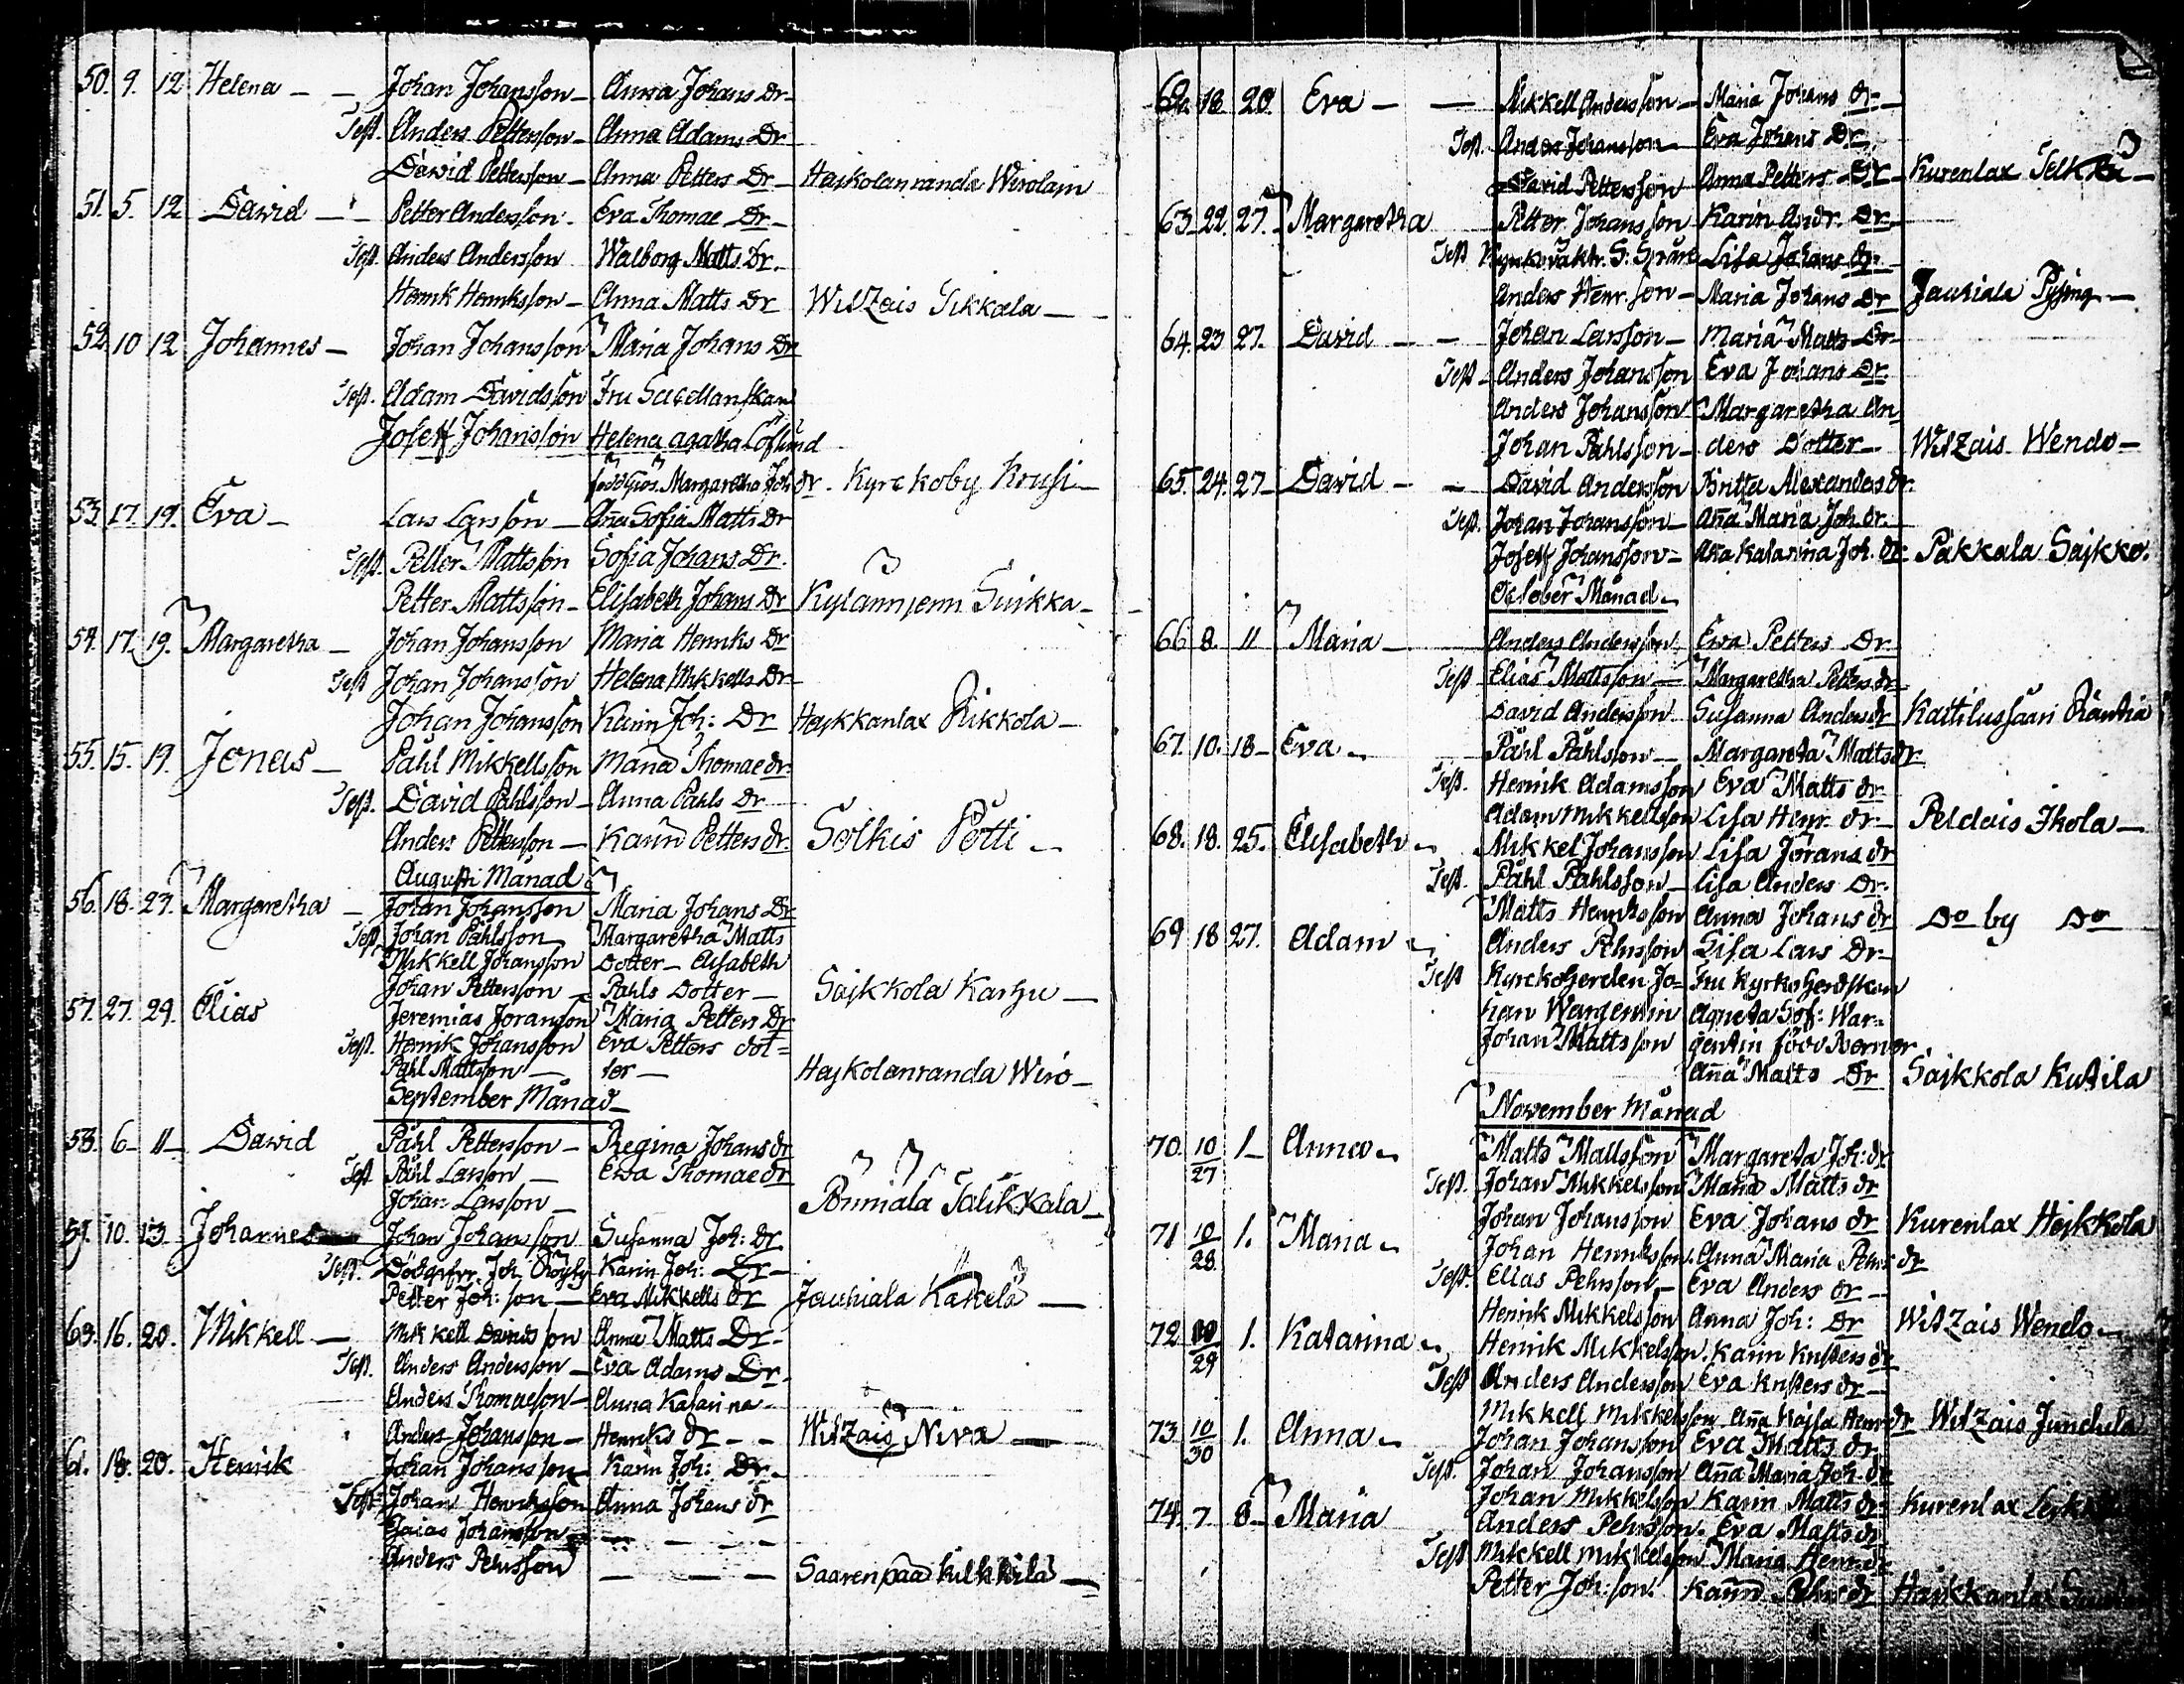 50. 9. 12 Helena - - Johan Johansson - Anna Johans Dr -
Test. Anders Pettersson - Anna Adams Dr
David Pettersson - Anna Petters Dr - Heikolanranda Wirolain
51. 5. 12 David - - Petter Andersson - Eva Thomae Dr -
Test Anders Andersson Walborg Matts Dr.
Henrik Henriksson - Anna Matts Dr Witzais Sikkala -
52. 10 12 Johannes - Johan Johansson Maria Johans Dr
Test. Adam Davidsson Fru
Joseff Johansson Helena Agatha Löflund
Margaretha Joh dr. Kyrckoby Krusi -
53. 17. 19. Eva - Lars Larsson - Aña Sofia Matts Dr
Test. Petter Mattsson Sofia Johans Dr.
Petter Mattsson - Elisabeth Johans Dr Kylännjenn Suikka -
54. 17. 19. Margaretha - Johan Johansson Maria Henriks Dr
Test Johan Johansson Helena Mikkells Dr -
Johan Johansson Karin Joh: Dr Heikkanlax Rikkola -
55. 15. 19. Jonas - Påhl Mikkellsson Maria Thomae dr.
Test. David Påhlsson - Anna Påhls Dr
Anders Pettersson - Karin Petters dr. Solkis Pötti -
Augusti Månad
56. 18. 27. Margaretha - Johan Johansson Maria Johans Dr
Test. Johan Påhlsson Margaretha Matts
Mikkell Johansson Dotter - Elisabeth
Johan Pettersson - Påhls Dotter - Saikkola Karhu -
57. 27. 29. Elias Jeremias Joransson Maria Petters Dr
Test. Henrik Johansson Eva Petters dot=
Påhl Mattsson - ter - Heikolanranda Wiro -
September Månad -
58. 6 - 11 - David Påhl Pettersson - Regina Johans dr
Test Påhl Larsson - Ewa Thomae dr
Johan Larsson - Ponniala Talikkala -
59. 10. 13. Johannes Johan Johansson Susanna Joh: dr
Test. Joh. Karin Joh: Dr -
Petter Joh: son - Eva Mikkells dr Jauhiala Käkelä -
60. 16. 20. Mikkell - Mikkell Davidsson Anna Matts Dr -
Test. Anders Andersson - Eva Adams Dr.
Anders Thomaeson - Anna Katarina -
Anders Johansson - Henriks dr - - Witzais Niva -
61. 18. 20. Henrik Johan Johansson Karin Joh: Dr -
Test. Johan Henriksson Anna Johans dr
Esaias Johansson - - - -
Anders Pehrsson - - - Saarenpää Kilkkilä -
62. 18. 20. Eva - - Mikkell Andersson - Maria Johans dr -
Test. Anders Johansson Eva Johans Dr
David Pettersson Anna Petters Dr - Kurenlax Telkkä -
63. 22. 27. Margaretha Petter Johansson Karin Andr. Dr -
Test Lisa Johans dr -
Anders Henr. son - Maria Johans Dr Jauhiala Pysing -
64. 23 27. David - - Johan Larsson - Maria Matts Dr -
Test - Anders Johansson Eva Johans Dr.
Anders Johansson Margaretha An
Johan Påhlsson - ders Dotter - Witzais Wendo -
65. 24. 27 - David - - David Andersson Britta Alexanders dr.
Test. Johan Johansson - Aña Maria Joh. dr.
Joseff Johansson - Aña Katarina Joh. dr. Pakkala Saikko.
October Månad -
66 8. 11 Maria - Anders Andersson Ewa Petters Dr
Test Elias Mattsson - Margaretha Petters dr -
David Andersson Susanna Anders dr Kattilussaari Räntiä
67. 10. 18 - Eva - Påhl Påhlsson - Margareta Matts dr.
Test. Henrik Adamsson Eva Matts dr
Adam Mikkellsson Lisa Henr. dr - Peldais Ikola -
68. 18. 25. Elisabeth - Mikkel Johansson Lisa Jorans dr
Test. Påhl Påhlsson - Lisa Anders Dr.
Matts Henriksson Anna Johans dr Do by Do
69 18 27. Adam - Anders Pehrsson Lisa Lars Dr -
Test Kyrckoherden Jo= Fru Kyrkoherdskan
han Wargentin Agneta Sof: War=
Johan Mattsson gentin född Norner
Aña Matts Dr Saikkola Kutila
November Månad
70. 10/27 1 - Anna - Matts Mattsson Margareta Joh: dr
Test. Johan Mikkelsson Maria Matts dr
Johan Johansson Eva Johans dr Kurenlax Heikkola
71 10/28 1. Maria - Johan Henriksson. Anna Maria Pehrs dr
Test. Elias Pehrsson - Eva Anders dr -
Henrik Mikkelsson Anna Joh: Dr Witzais Wendo -
72 10/29 1. Katarina - Henrik Mikkelsson. Karin Kristers dr
Test Anders Andersson Eva Kristers dr -
Mikkell Mikkelsson Aña Kajsa Henr dr Witzais Jundula
73 10/30 1. Anna - Johan Johansson Eva Matts dr
Test. Johan Johansson Aña Maria Joh. dr
Johan Mikkelsson Karin Matts dr. Kurenlax
74. 7. 8 - Maria Anders Pehrsson. Eva Matts dr
Test Mikkell Mikkelsson Maria Henr. dr
Petter Joh: son. Karin Pehrs dr Heikkanlax